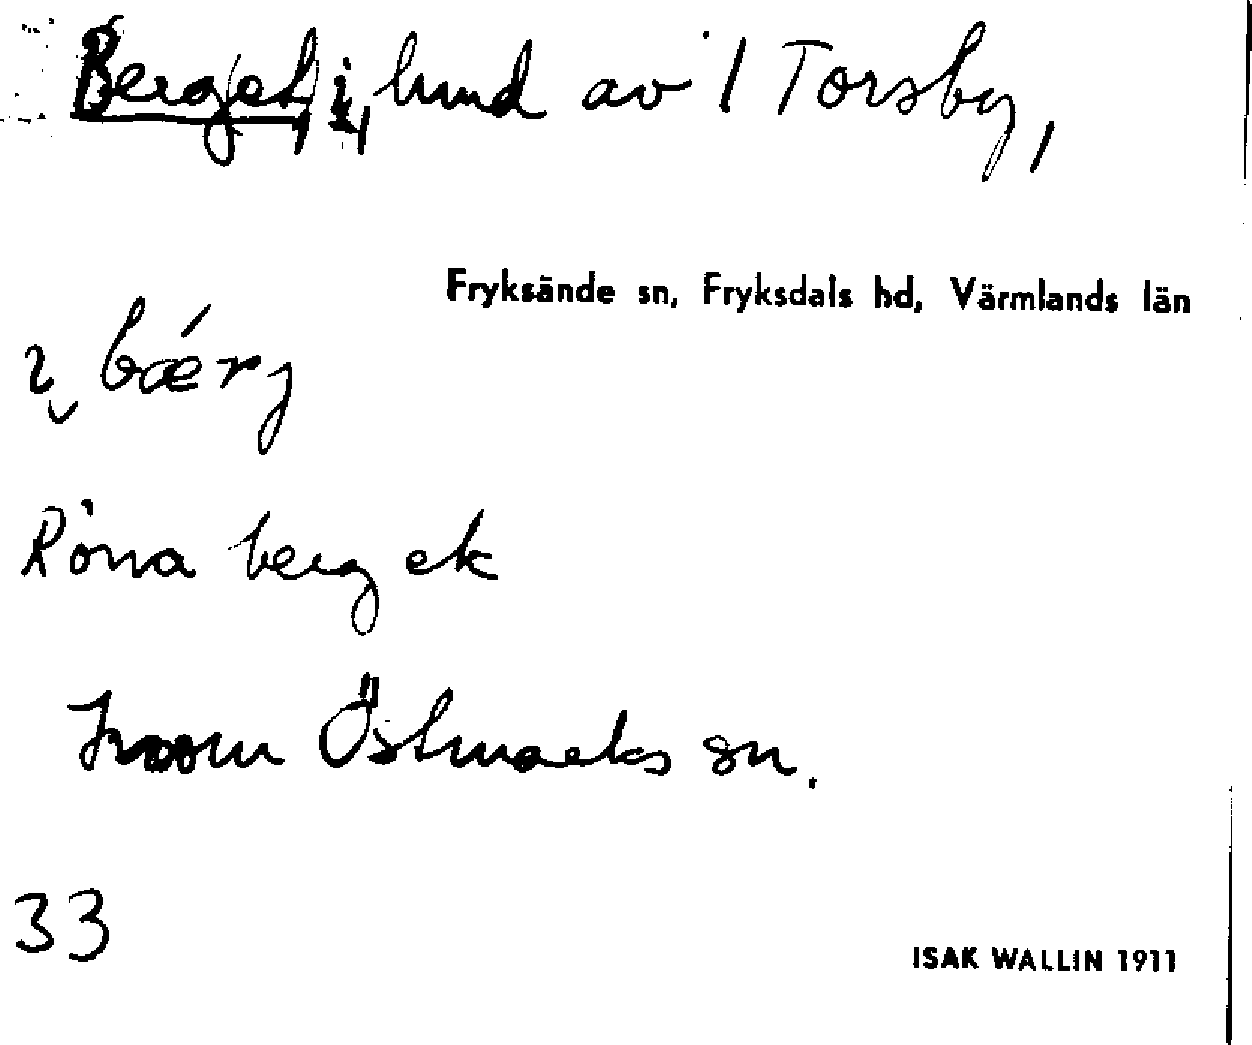 Berget, i, lund av 1 Torsby,
Fryksände sn, Fryksdals hd, Värmlands län
bærj
Röna berg ek
Inom Östmarks sn.
33
ISAK WALLIN 1911